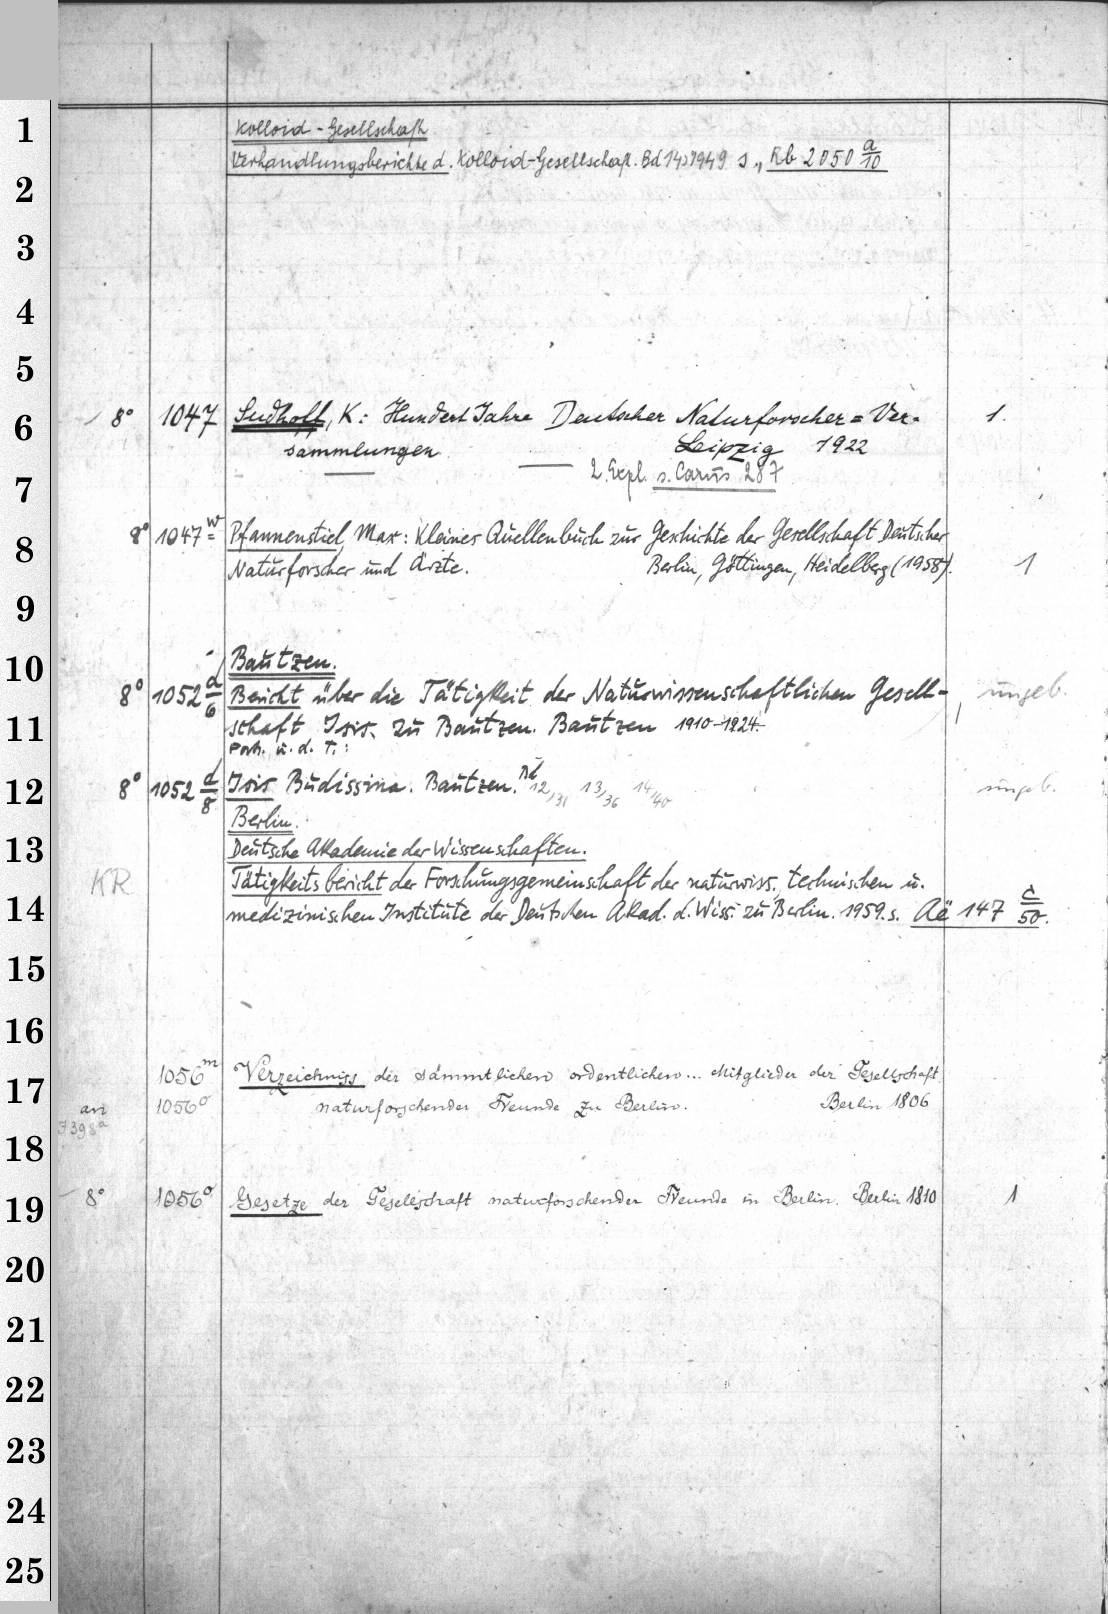 1
Kolloid-Gesellschaft
Verhandlungsberichte d. Kolloid-Gesellschaft. Bd 14, 1949 s. Kb 2050 a/10
2
3
4
5
6
8° 1047 Sudhoff, K: Hundert Jahre Deutscher Naturforscher=Ver- 1.
sammlungen Leipzig 1922
7
2. Expl. s. Carus 287
8
8° 1047 w Pfannenstiel, Max: Kleines Quellenbuch zur Geschichte der Gesellschaft Deutscher
Naturforscher und Ärzte. Berlin, Göttingen, Heidelberg (1958). 1
9
10
Bautzen.
8° 1052 d/6 Bericht über die Tätigkeit der Naturwissenschaftlichen Gesell- ungeb.
11
schaft Isis zu Bautzen. Bautzen 1910-1924.
Forts. u. d. T.:
12
8° 1052 d/8 Isis Budissina. Bautzen. Bd 12,/31 13/36 14/40 ungeb.
Berlin.
13
Deutsche Akademie der Wissenschaften.
KR Tätigkeitsbericht der Forschungsgemeinschaft der naturwiss., technischen u.
14
medizinischen Institute der Deutschen Akad. d. Wiss. zu Berlin. 1959. s. Aë 147 c/50.
15
16
17
1056 m Verzeichniss der sämmtlichen ordentlichen... Mitglieder der Gesellschaft
an 1056 o naturforschender Freunde zu Berlin. Berlin 1806
18
19
8° 1056 o Gesetze der Gesellschaft naturforschender Freunde in Berlin. Berlin 1810 1
20
21
22
23
24
25